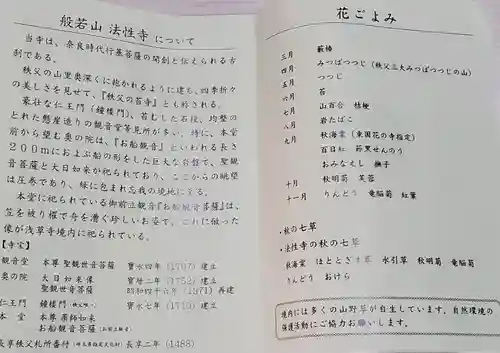 般若山 法性寺 について
当寺は、奈良時代行基菩薩の開創と伝えられる古
刹である。
秩父の山里奥深くに抱かれるように建ち、四季折々
の美しさを見せて、『秩父の苔寺』とも称される。
豪壮な仁王門（鐘楼門）、苔むした石段、均整の
とれた懸崖造りの観音堂等見所が多い。特に、本堂
前から望む奥の院は、『お船観音』といわれる長さ
200mにおよぶ船の形をした巨大な岩盤で、聖観
音菩薩と大日如来が祀られており、ここからの眺望
は圧巻であり、緑に包まれ忘我の境地に至る。
本堂に祀られている御前立観音『お船観音菩薩』は、
笠を被り櫂で舟を漕ぐ珍しいお姿で、これに倣った
像が浅草寺境内に祀られている。
【寺宝】
観音堂 本尊 聖観世音菩薩 寶永四年（1707）建立
奥の院 大日如来像 寶暦二年（1752）建立
聖観世音菩薩 昭和四十六年（1971）再建
仁王門 鐘楼門 寶永七年（1710）建立
本堂 本尊 薬師如来
お船観音菩薩（お前立観音）
長享秩父札所番付（埼玉県指定文化財）長享二年（1488）
花ごよみ
三月 藪椿
四月 みつばつつじ（秩父三大みつばつつじの山）
五月 つつじ
六月 苔
七月 山百合 桔梗
八月 岩たばこ
九月 秋海棠（東国花の寺指定）
百日紅 節黒せんのう
おみなえし 撫子
十月 秋明菊 芙蓉
十一月 りんどう 竜脳菊 紅葉
・秋の七草
・法性寺の秋の七草
秋海棠 ほととぎす草 水引草 秋明菊 竜脳菊
りんどう おけら
境内には多くの山野草が自生しています。自然環境の
保護活動にご協力お願いします。